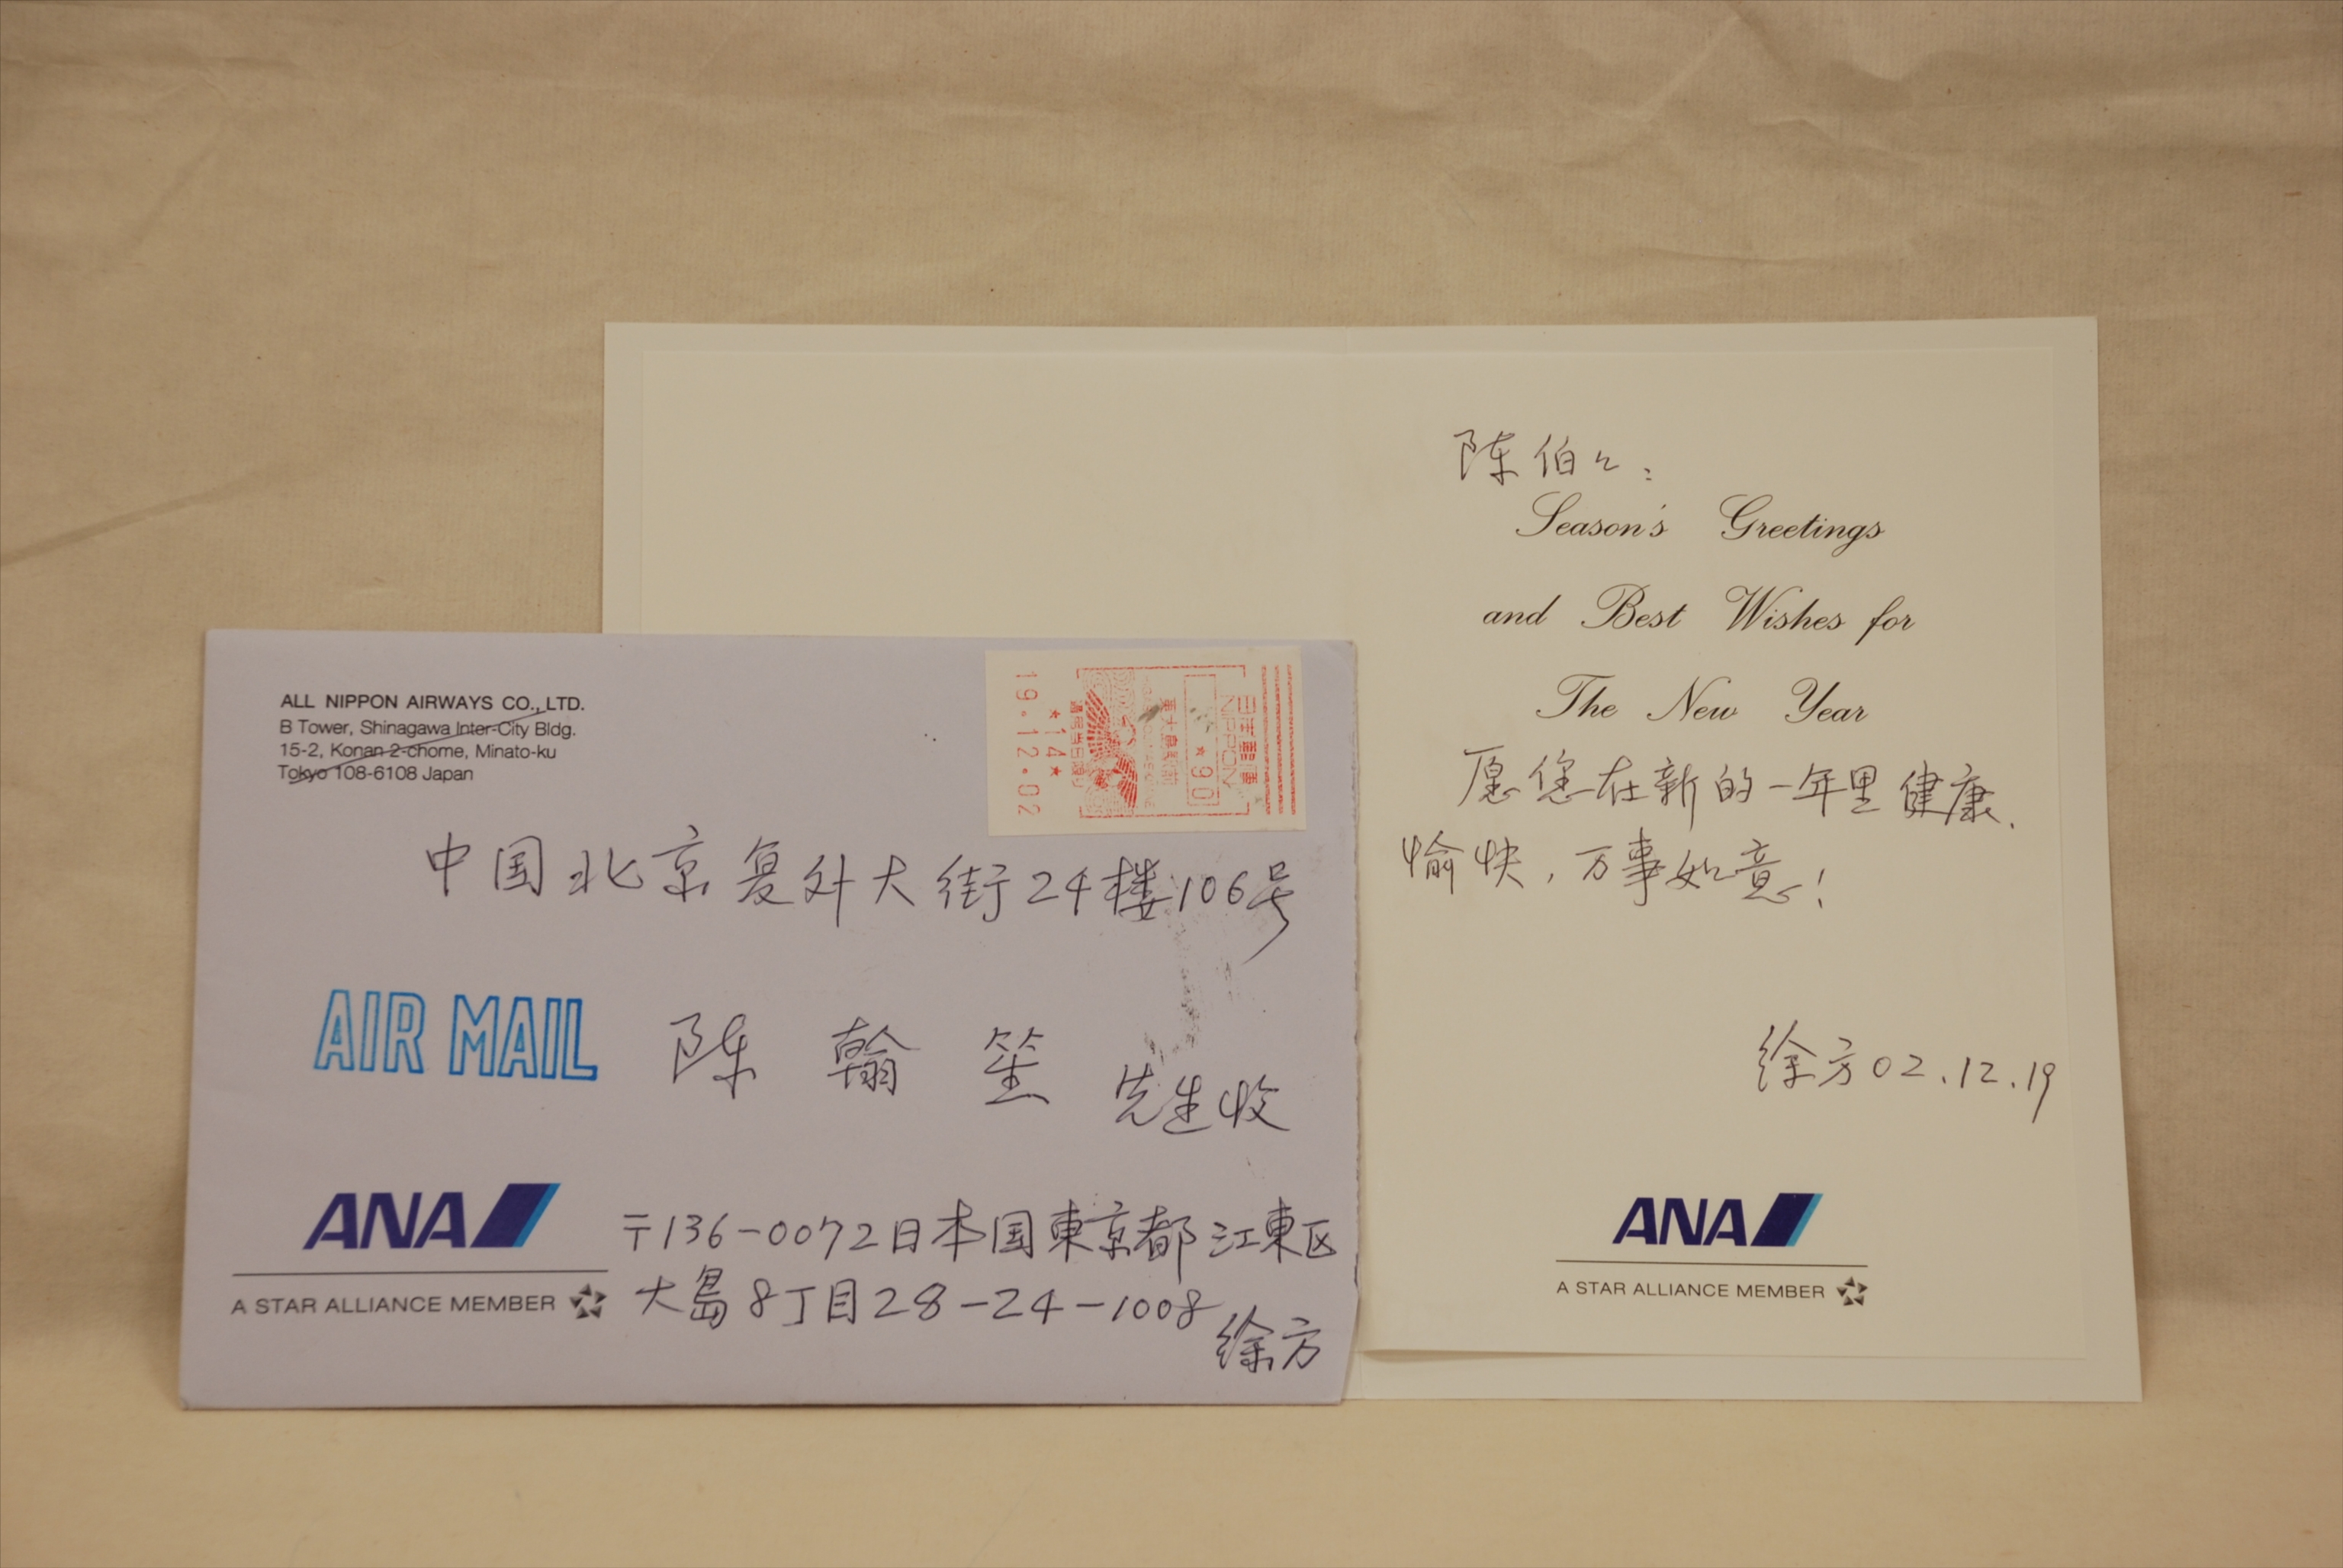 ALL NIPPON AIRWAYS CO., LTD.
B Tower, Shinagawa Inter-City Bldg.
15-2, Konan 2-chome, Minato-ku
Tokyo 108-6108 Japan
日本郵便
NIPPON
*90
*14*
19.12.02
中国北京复外大街24楼106号
AIR MAIL
陈翰笙 先生收
ANA
A STAR ALLIANCE MEMBER
〒136-0072日本国東京都江東区
大島8丁目28-24-1008
徐方
陈伯々:
Season's Greetings
and Best Wishes for
The New Year
愿您在新的一年里健康、
愉快,万事如意!
徐方02.12.19
ANA
A STAR ALLIANCE MEMBER